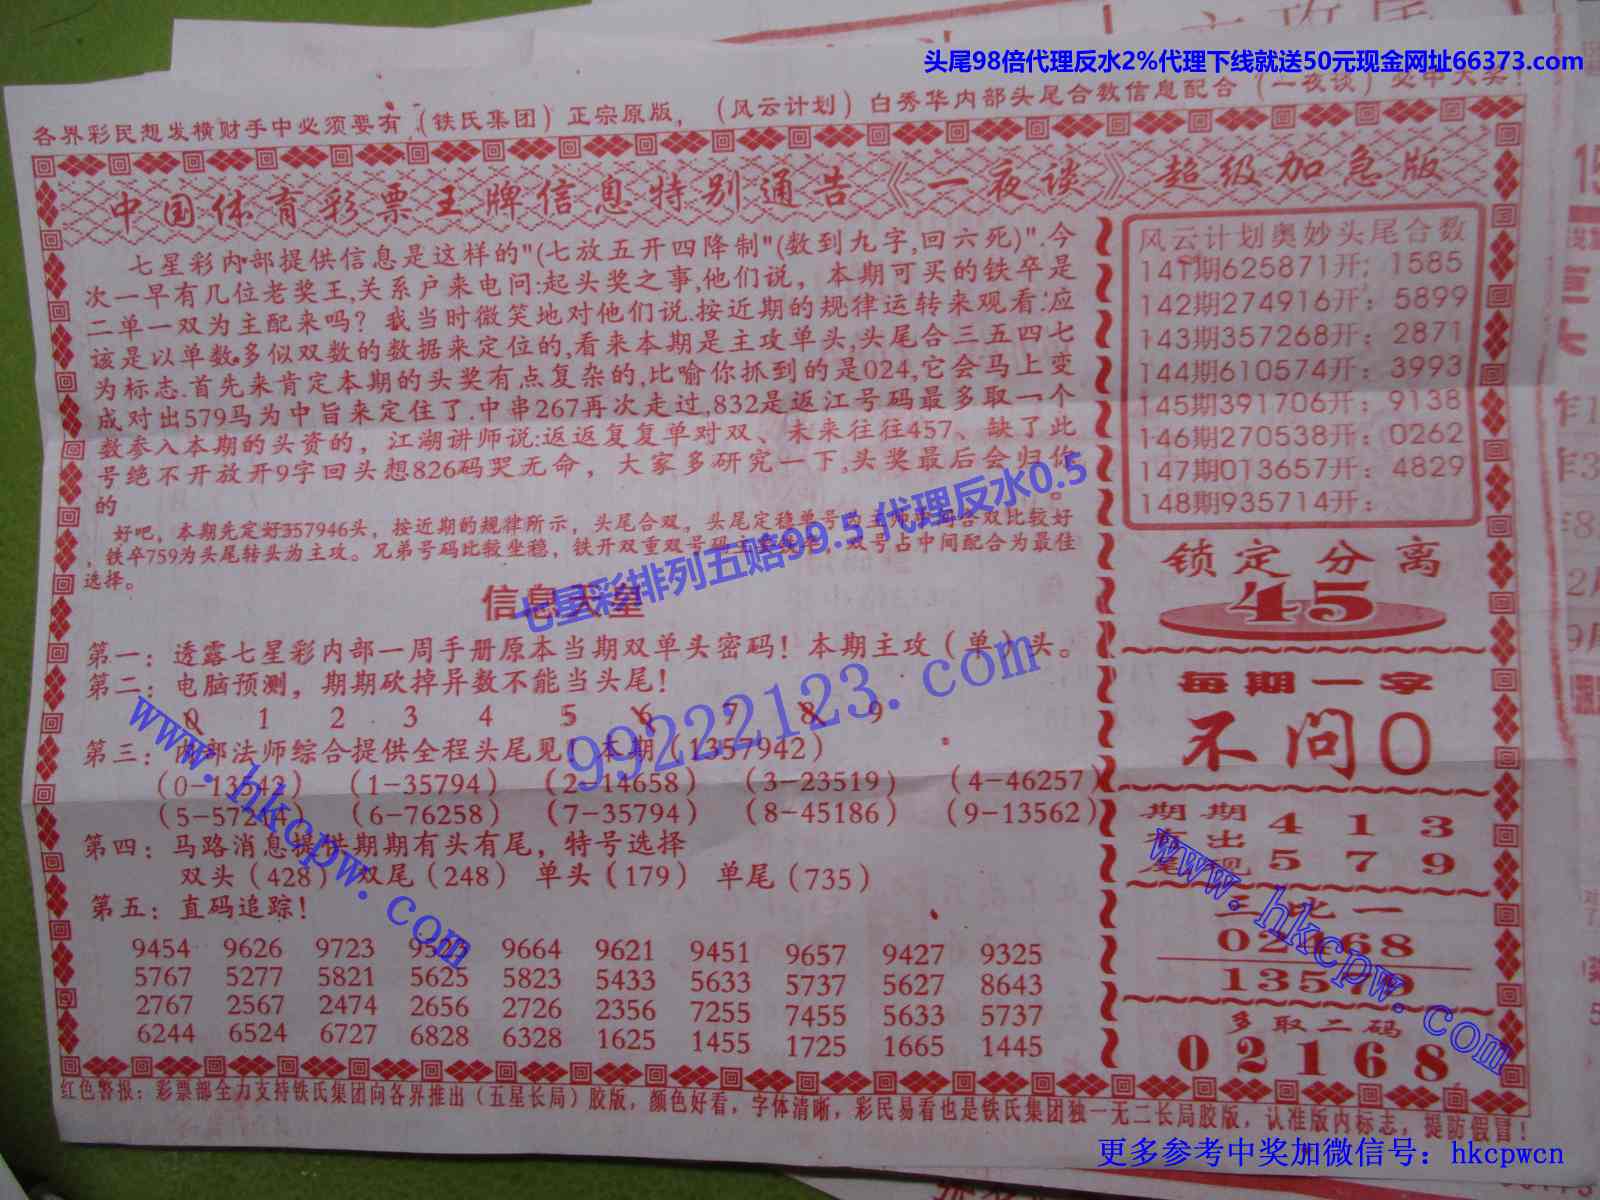 头尾98倍代理反水2%代理下线就送50元现金网址66373.com
各界彩民想发横财手中必须要有（铁氏集团）正宗原版，（风云计划）白秀华内部头尾合数信息配合（一夜谈）必中大奖！
中国体育彩票王牌信息特别通告《一夜谈》超级加急版
七星彩内部提供信息是这样的"(七放五开四降制"(数到九字,回六死)".今
次一早有几位老奖王,关系户来电问:起头奖之事,他们说，本期可买的铁卒是
二单一双为主配来吗？我当时微笑地对他们说.按近期的规律运转来观看:应
该是以单数.多似双数的数据来定位的,看来本期是主攻单头,头尾合三五四七
为标志.首先来肯定本期的头奖有点复杂的,比喻你抓到的是024,它会马上变
成对出579马为中旨来定住了.中串267再次走过,832是返江号码最多取一个
数参入本期的头资的，江湖讲师说:返返复复单对双、未来往往457、缺了此
号绝不开放开9字回头想826码哭无命，大家多研究一下,头奖最后会归你
的。
好吧，本期先定好357946头，按近期的规律所示，头尾合双，头尾定稳单号为主 合双比较好
，铁卒759为头尾转头为主攻。兄弟号码比较坐稳，铁开双重双号码 双号占中间配合为最佳
选择。
七星彩排列五赔99.5 代理反水0.5
信息天皇
第一：透露七星彩内部一周手册原本当期双单头密码！本期主攻（单）头。
第二：电脑预测，期期砍掉异数不能当头尾！
0 1 2 3 4 5 6 7 8 9
99222123.com
第三：内部法师综合提供全程头尾见！本期（1357942）
（0-13542） （1-35794） （2-14658） （3-23519） （4-46257）
（6-76258） （7-35794） （8-45186） （9-13562）
第四：马路消息提供期期有头有尾，特号选择
双头（428） 双尾（248） 单头（179） 单尾（735）
第五：直码追踪！
9454 9626 9723 9523 9664 9621 9451 9657 9427 9325
5767 5277 5821 5625 5823 5433 5633 5737 5627 8643
2767 2567 2474 2656 2726 2356 7255 7455 5633 5737
6244 6524 6727 6828 6328 1625 1455 1725 1665 1445
www.hkcpw.com
风云计划奥妙头尾合数
141期625871开：1585
142期274916开：5899
143期357268开：2871
144期610574开：3993
145期391706开：9138
146期270538开：0262
147期013657开：4829
148期935714开：
锁定分离
45
每期一字
不问0
期期 4 1 3
有出 5 7 9
尾现
三比一
02468
13579
多取二码
02168
www.hkcpw.com
红色警报：彩票部全力支持铁氏集团向各界推出（五星长局）胶版，颜色好看，字体清晰，彩民易看也是铁氏集团独一无二长局胶版，认准版内标志，提防假冒！
更多参考中奖加微信号：hkcpwcn